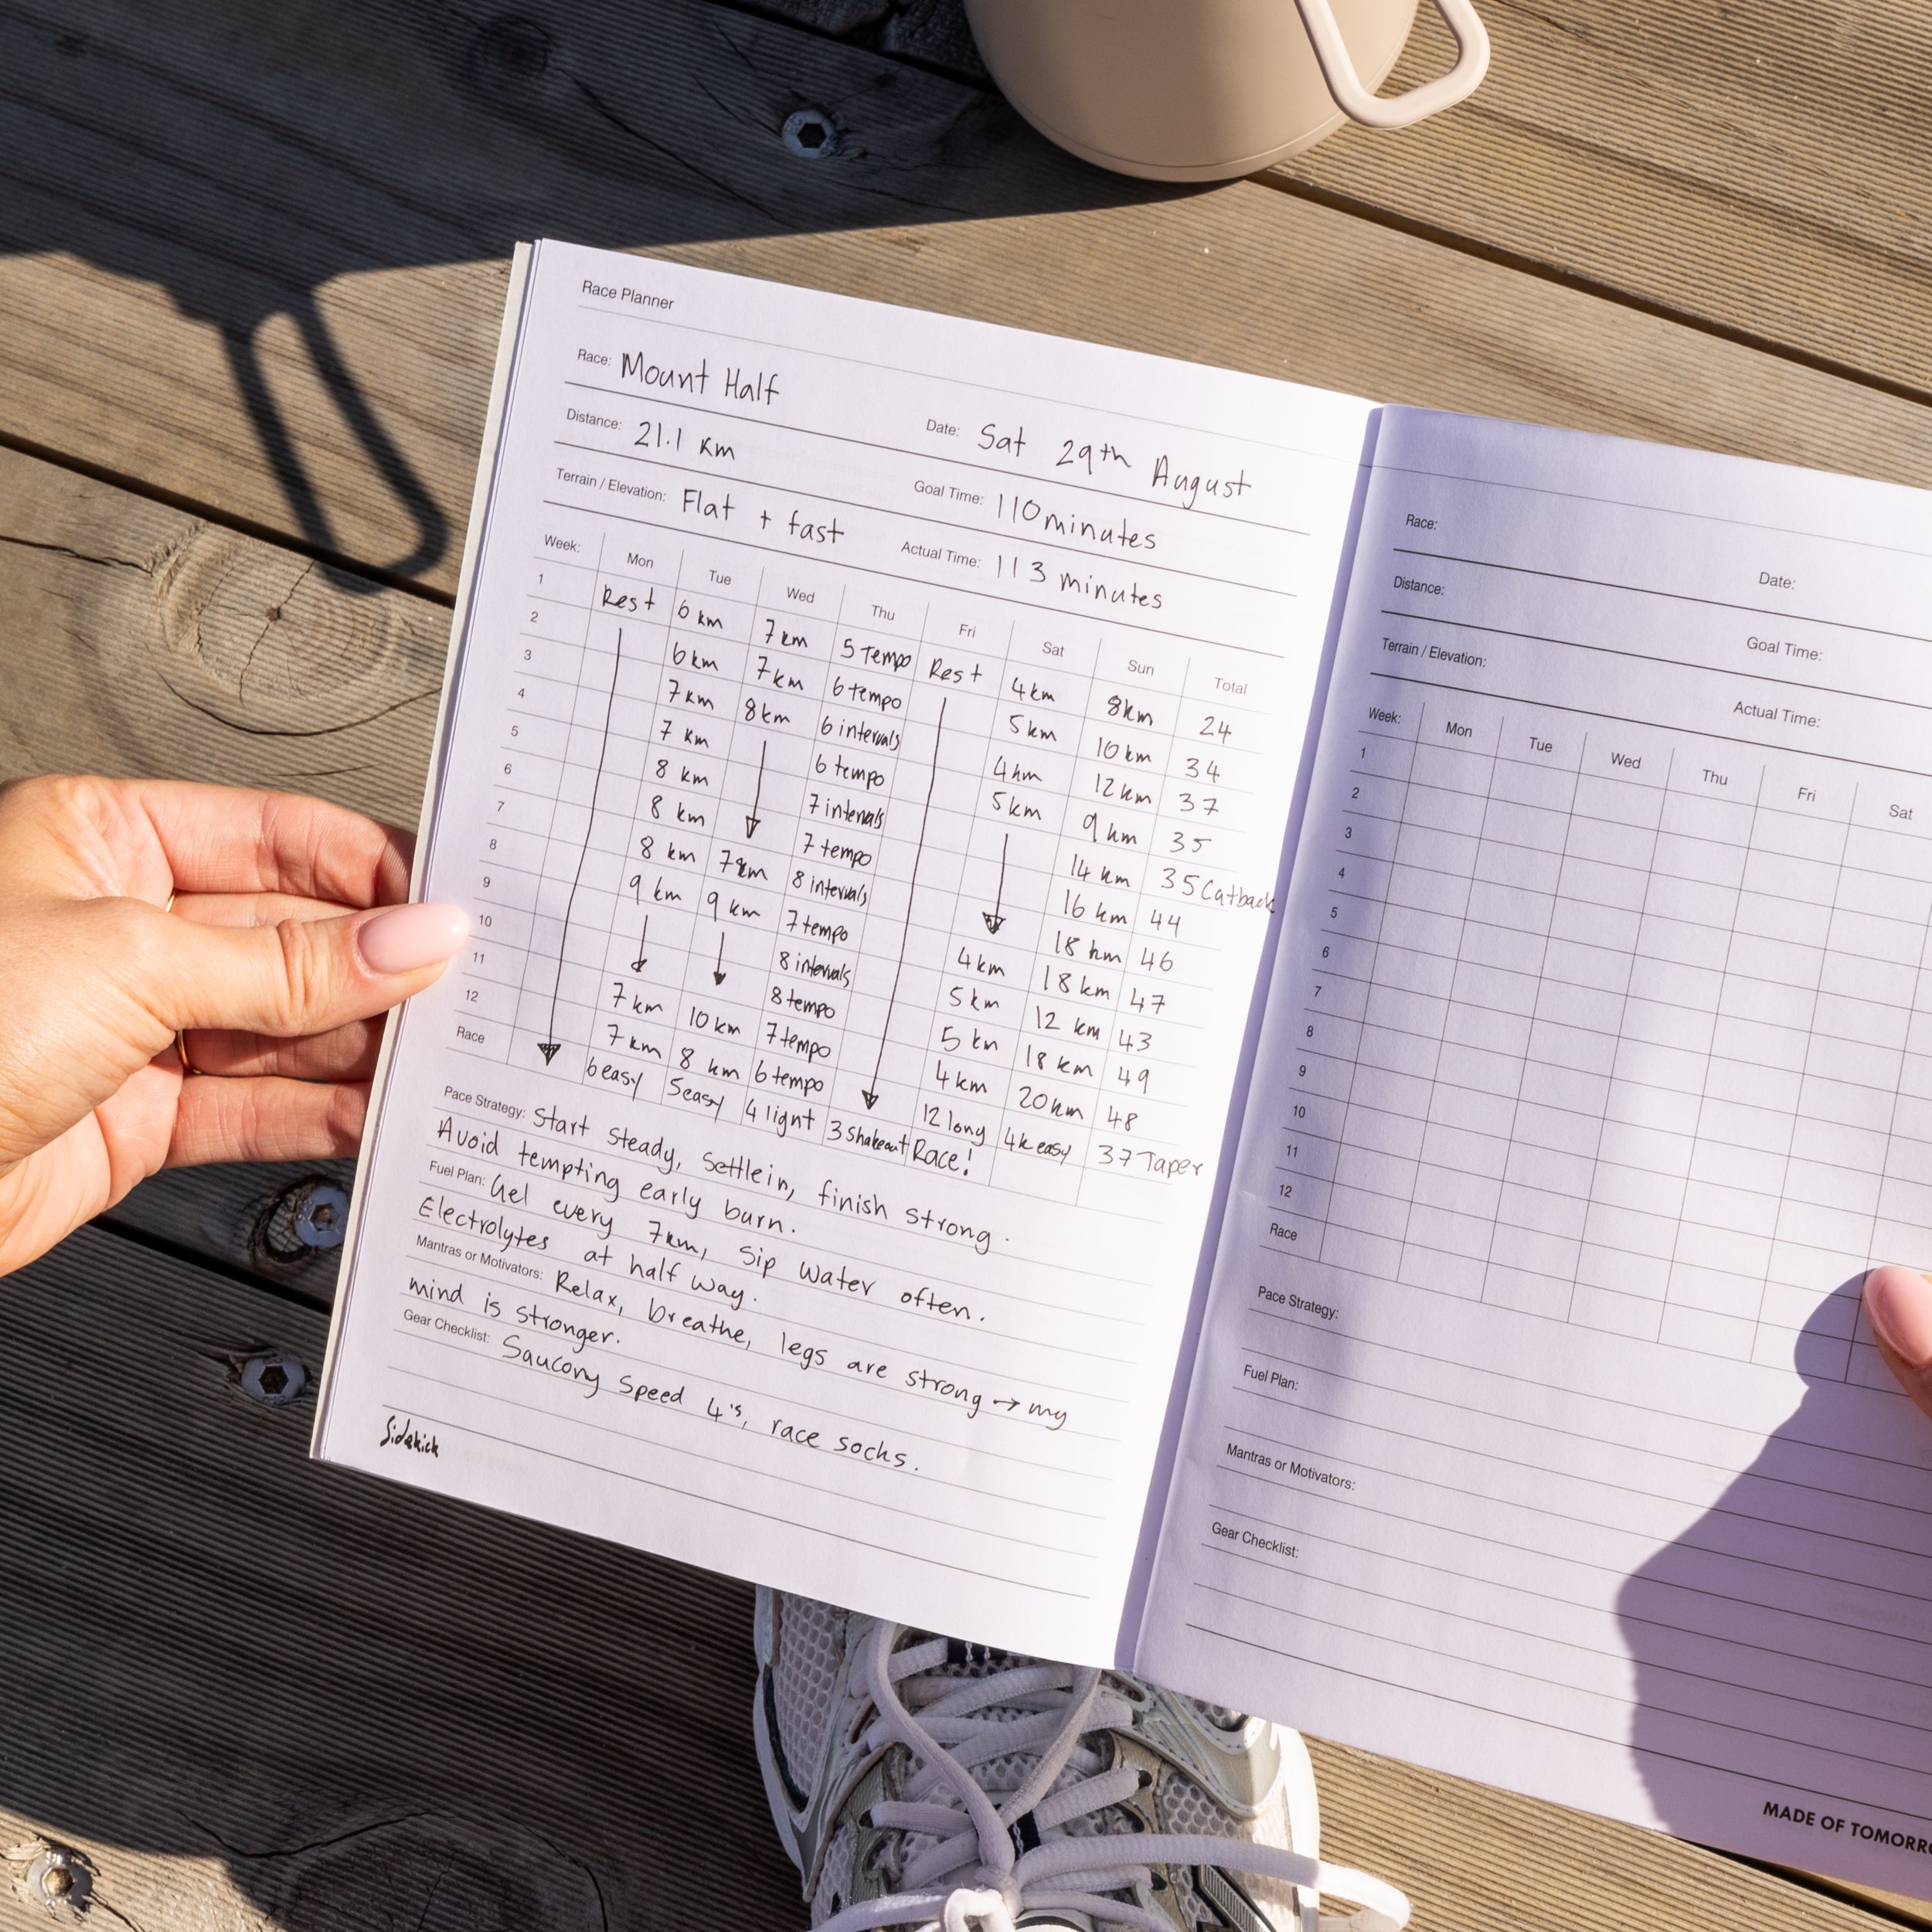 Race Planner
Race: Mount Half
Date: Sat 29th August
Distance: 21.1 km
Goal Time: 110 minutes
Terrain / Elevation: Flat + fast
Actual Time: 113 minutes
Week: Mon Tue Wed Thu Fri Sat Sun Total
1 Rest 6 km 7 km 5 Tempo Rest 4 km 8km 24
2 6 km 7 km 6 tempo 5 km 10 km 34
3 7 km 8 km 6 intervals 4 km 12 km 37
4 7 km 6 tempo 5 km 9 km 35
5 8 km 7 intervals 14 km 35 Cutback
6 8 km 7 tempo 16 km 44
7 8 km 7 km 8 intervals 18 km 46
8 9 km 9 km 7 tempo 4 km 18 km 47
9 8 intervals 5 km 12 km 43
10 8 tempo 5 km 18 km 49
11 7 km 10 km 7 tempo 4 km 20 km 48
12 7 km 8 km 6 tempo 12 long 4k easy 37 Taper
Race 6 easy 5 easy 4 light 3 shakeout Race!
Pace Strategy: Start steady, settle in, finish strong.
Avoid tempting early burn.
Fuel Plan: Gel every 7km, sip water often.
Electrolytes at half way.
Mantras or Motivators: Relax, breathe, legs are strong → my
mind is stronger.
Gear Checklist: Saucony Speed 4's, race socks.
Sidekick
Race:
Date:
Distance:
Goal Time:
Terrain / Elevation:
Actual Time:
Week: Mon Tue Wed Thu Fri Sat
1
2
3
4
5
6
7
8
9
10
11
12
Race
Pace Strategy:
Fuel Plan:
Mantras or Motivators:
Gear Checklist:
MADE OF TOMORRO